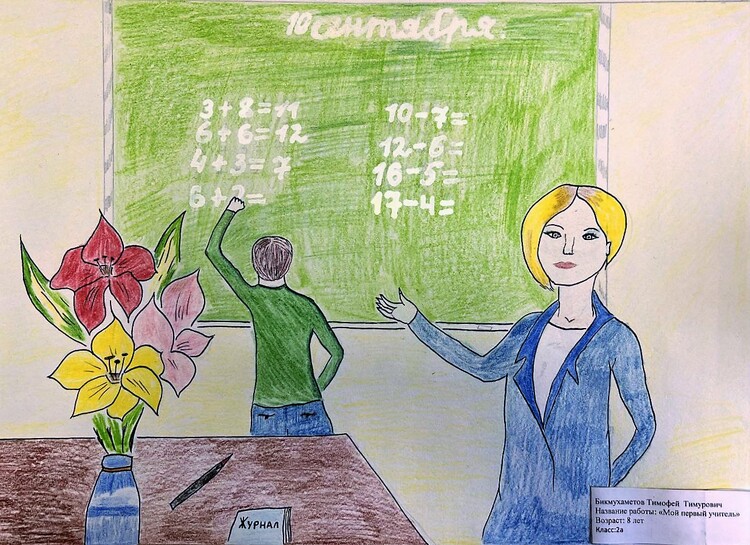 10 сентября.
3+8=11
6+6=12
4+3=7
6+2=
10-7=
12-6=
16-5=
17-4=
ЖУРНАЛ
Бикмухаметов Тимофей Тимурович
Название работы: «Мой первый учитель»
Возраст: 8 лет
Класс:2а